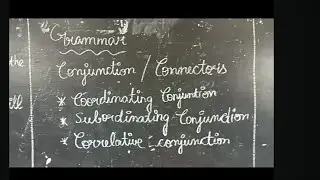 Grammar
Conjunction / Connectors
the
* Coordinating Conjuntion
* Subordinating Conjunction
* Correlative conjunction